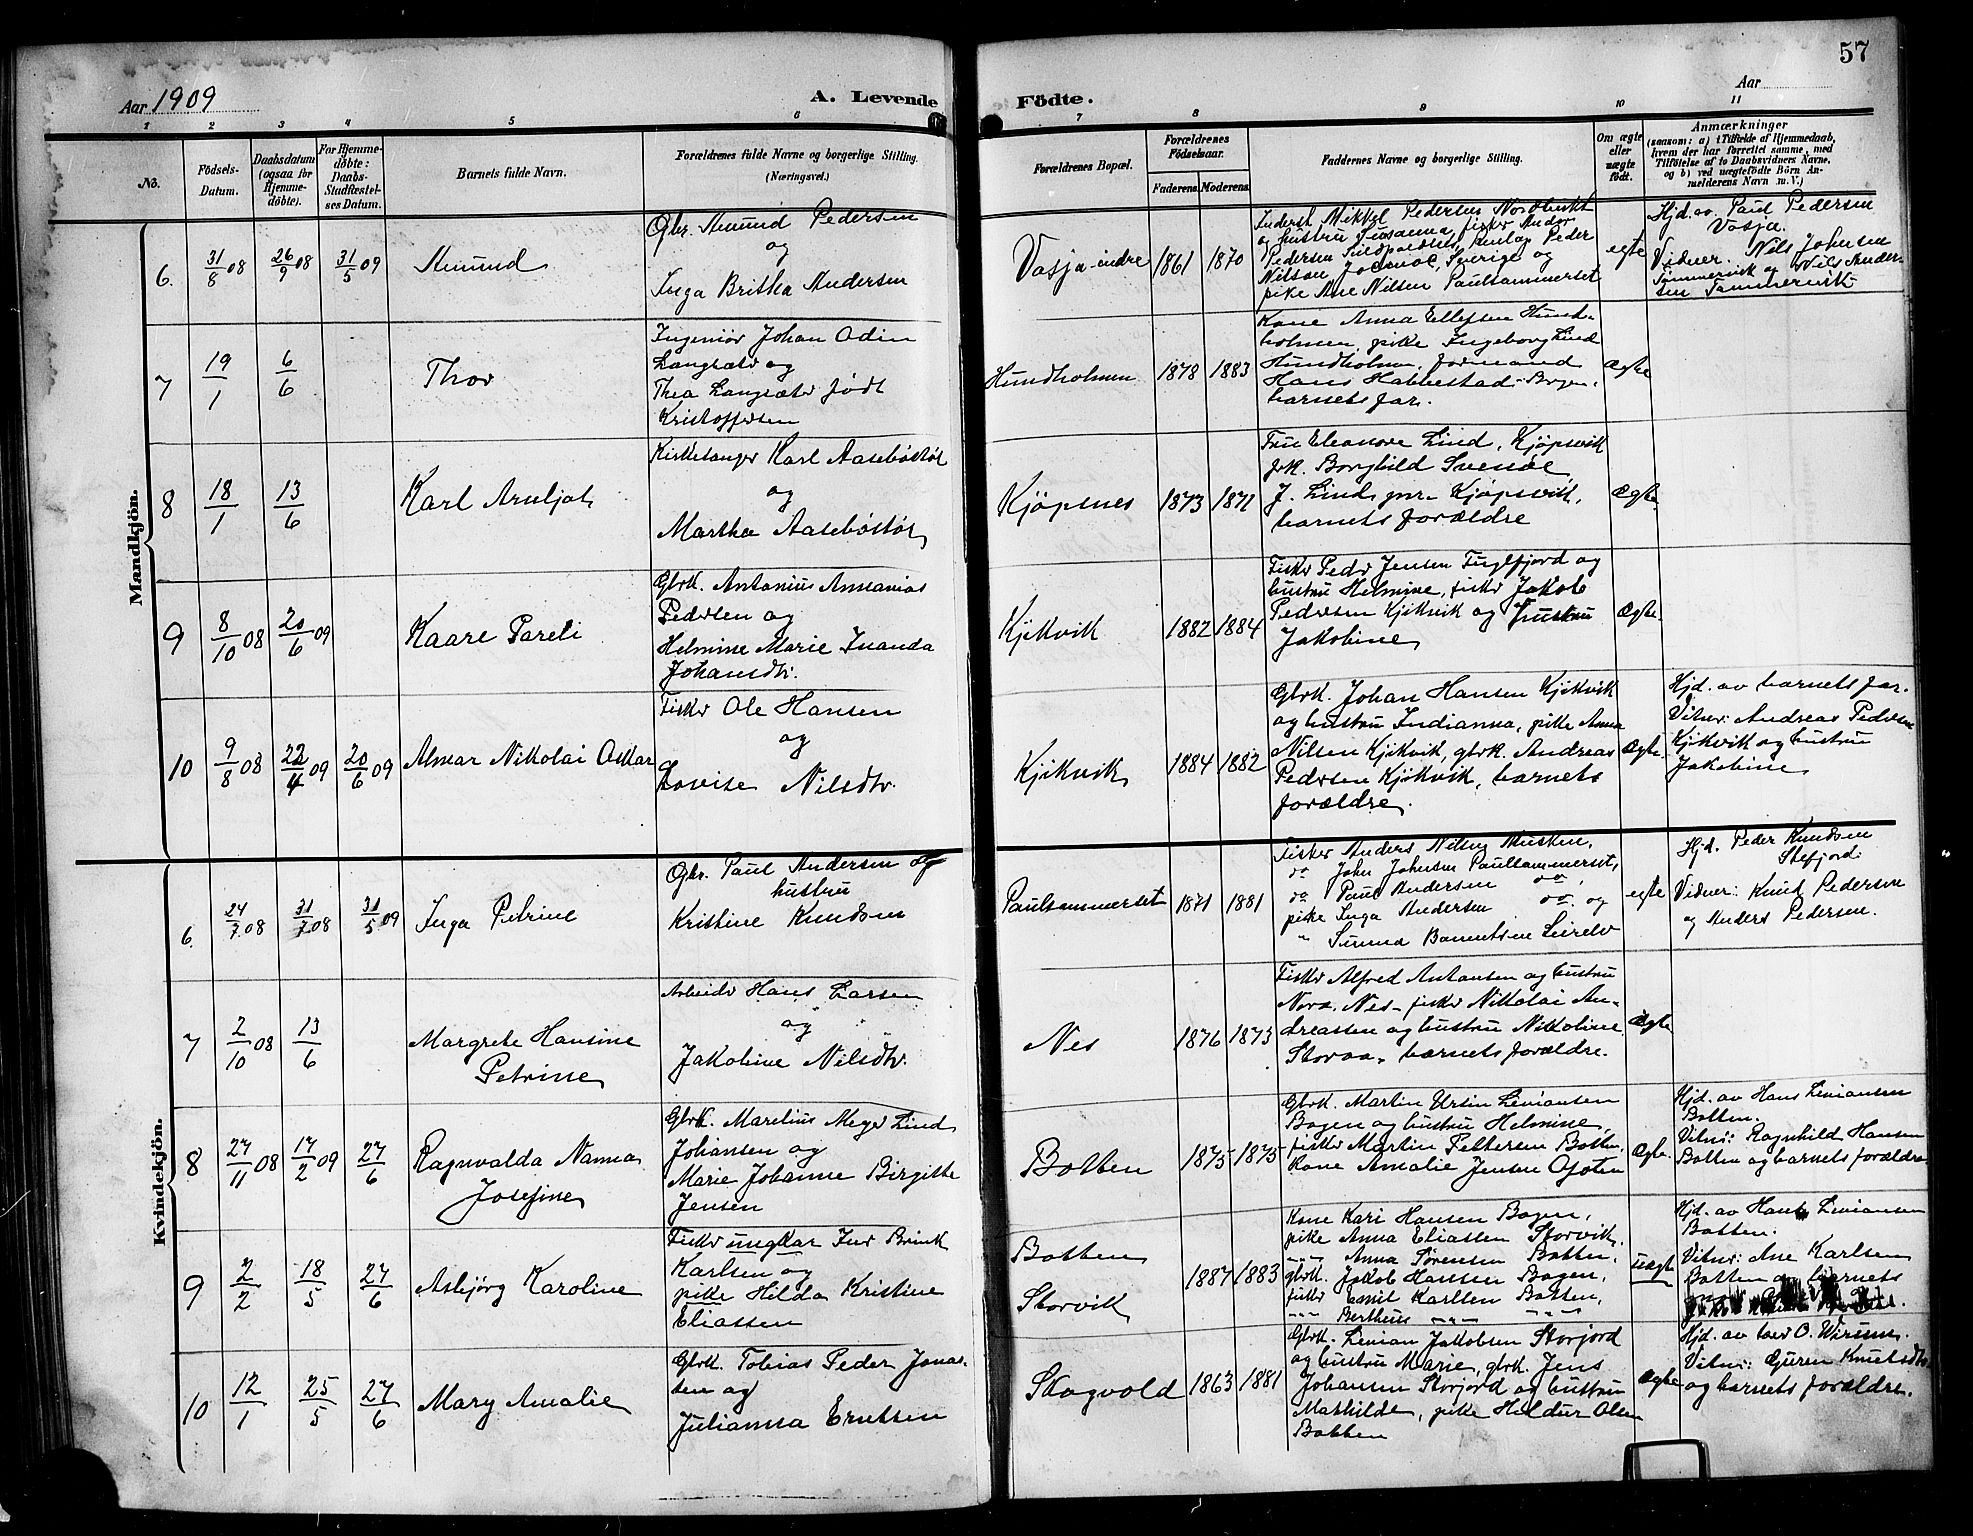 57
Aar 1909
A. Levende
Födte.
Aar
1 2 3 4 5 6 7 8 9 10 11
No.
Födsels-
Datum.
Daabsdatum
(ogsaa for
Hjemme-
döbte).
For Hjemme-
döbte:
Daabs-
Stadfæstel-
ses Datum.
Barnets fulde Navn.
Forældrenes fulde Navne og borgerlige Stilling.
(Næringsvei.)
Forældrenes Bopæl.
Forældrenes
Födselsaar.
Faderens. Moderens.
Faddernes Navne og borgerlige Stilling.
Om ægte
eller
uægte
födt.
Anmærkninger
(saasom: a) i Tilfælde af Hjemmedaab,
hvem der har forrettet samme, med
Tilföielse af to Daabsvidners Navne,
og b) ved uægtefödte Börn An-
melderens Navn m.V.)
Mandkjön.
6. 31/8 08 26/9 08 31/5 09
Amund
Gbr. Amund Pedersen
og
Inga Britha Andersen
Vasja indre 1861 1870
Inderst Mikkel Pedersen Nordbukt
og hustru Susanna, fisker Andor
Pedersen Peder
Nilsen Sverige og
pike Ane Nilsen Paulsammerset
egte
Hjd. av Paul Pedersen
Vasja.
Vidner. Nils Johnsen
Tømmervik og Nils Ander-
sen Tømmervik
7 19/1 6/6
Thor
Ingeniør Johan Odin
Langsæter og
Thea Langsæter født
Kristoffersen
Hundholmen 1878 1883
Kone Anna Ellefsen Hund-
holmen, pike Ingeborg Lind
Hundholmen, formand
Hans Habbestad - Bogen,
barnets far.
Ægte
8 18/1 13/6
Karl Arnljot
Kirkesanger Karl Aasebøstøl
og
Martha Aasebøstøl
Kjöpsnes 1873 1871
Fru Eleanore Lind, Kjøpsvik
frk. Borghild Svensøe
J. Lind jnr. Kjöpsvik,
barnets forældre
Ægte.
9 8/10 08 20/6 09
Kaare Pareli
Gbrk. Antonius Annanias
Pedersen og
Helmine Marie Inanda
Johansdtr.
Kjikvik 1882 1884
Fisker Peder Jensen Fuglfjord og
hustru Helmine, fisker Jakob
Pedersen Kjikvik og hustru
Jakobine
Ægte.
10 9/8 08 22/4 09 20/6 09
Almar Nikolai Oskar
Fisker Ole Hansen
og
Lovise Nilsdtr.
Kjikvik 1884 1882
Gbrk. Johan Hansen Kjikvik
og hustru Indianna, pike Anna
Nilsen Kjikvik, gbrk. Andreas
Pedersen Kjikvik, barnets
forældre.
Ægte.
Hjd. av barnets far.
Vitner: Andreas Pedersen
Kjikvik og hustru
Jakobine
Kvindekjön.
6. 24/7 08 31/7 08 31/5 09
Inga Petrine
Gbr. Paul Andersen og
hustru
Kristine Knudsen
Paulsammerset 1871 1881
Fisker Anders Nilsen Musken,
do John Johnsen Paulsammerset,
do Paul Andersen do,
pike Inga Andersen do. og
" Sunna Leirelv
egte
Hjd. Peder Knudsen
Stefjord.
Vidner: Knut Pedersen
og Anders Pedersen.
7 2/10 08 13/6
Margrete Hansine
Petrine
Arbeider Hans Larsen
og
Jakobine Nilsdtr.
Nes 1876 1873
Fisker Alfred Antonsen og hustru
Nora, Nes - fisker Nikolai An-
dreassen og hustru Nikoline
Storaa - barnets forældre.
Ægte
8 27/11 08 17/2 09 27/6
Ragnvalda Nanna
Josefine
Gbrk. Marelius Meyer Lind
Johansen og
Marie Johanne Birgitte
Jensen
Botten 1875 1875
Gbrk. Martin Ursin Leviansen
Bogen og hustru Helmine,
fisker Martin Pettersen Botten
Kone Amalie Jensen
Ægte.
Hjd. av Hans Leviansen
Botten.
Vitner: Ragnhild Hansen
Botten og barnets forældre
9 2/2 18/5 27/6
Asbjörg Karoline
Fisker ungkar Iver Brink
Karlsen og
pike Hilda Kristine
Eliassen
Botten
Storvik 1887 1883
Kone Kari Hansen Bogen,
pike Anna Eliassen Storvik,
-"- Anna Sørensen Botten,
gbrk. Jakob Hansen Bogen,
fisker Emil Karlsen Botten,
-"- Bertheus -"- -"-
uægte
Hjd. av Hans Leviansen
Botten.
Vitner: Ane Karlsen
Botten og barnets
10 12/1 25/5 27/6
Mary Amalie
Gbrk. Tobias Peder Jonas-
sen og
Julianna Erntsen
Skogvold 1863 1881
Gbrk. Levian Jakobsen Storjord
og hustru Marie, gbrk. Jens
Johansen Storjord og hustru
Mathilde, pike Hildur Olsen
Botten
Ægte
Hjd. av O.
Vitner: Guren Knutsdtr.
og barnets forældre.